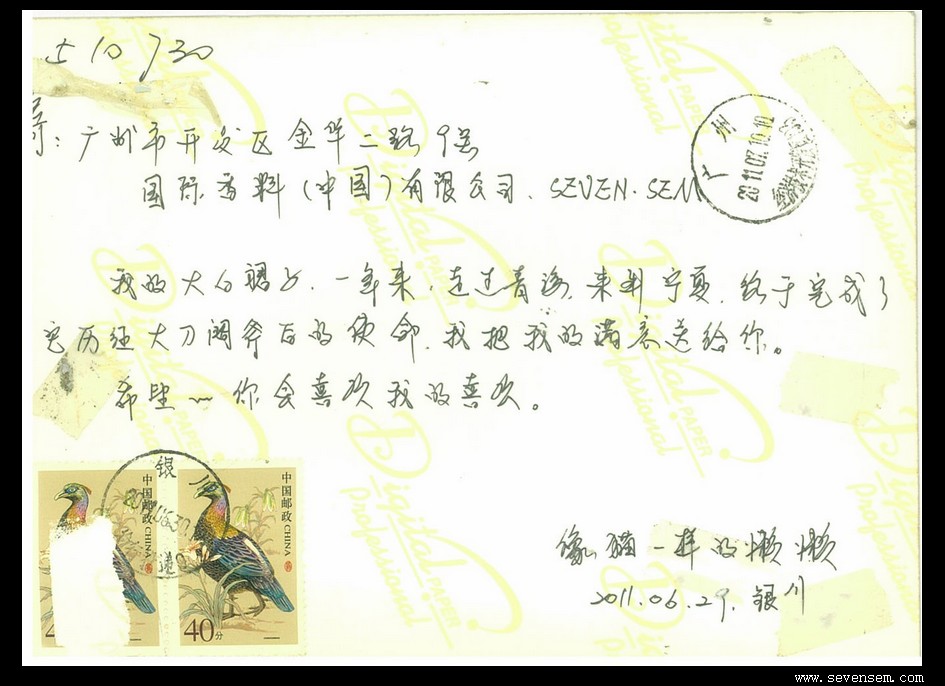 510730
寄：广州市开发区金华二路9号
国际香料（中国）有限公司、SEVEN·SEM
我的大白裙子，一年来，走过青海，来到宁夏，终于完成了
它历经大刀阔斧后的使命，我把我的满意送给你。
希望~ 你会喜欢我的喜欢。
像猫一样的懒懒
2011.06.29. 银川
广州
2011.07.10.10
银川
中国邮政 CHINA
中国邮政 CHINA
40分
Digital PAPER
Professional
Digital PAPER
Professional
Digital PAPER
Professional
www.sevensem.com